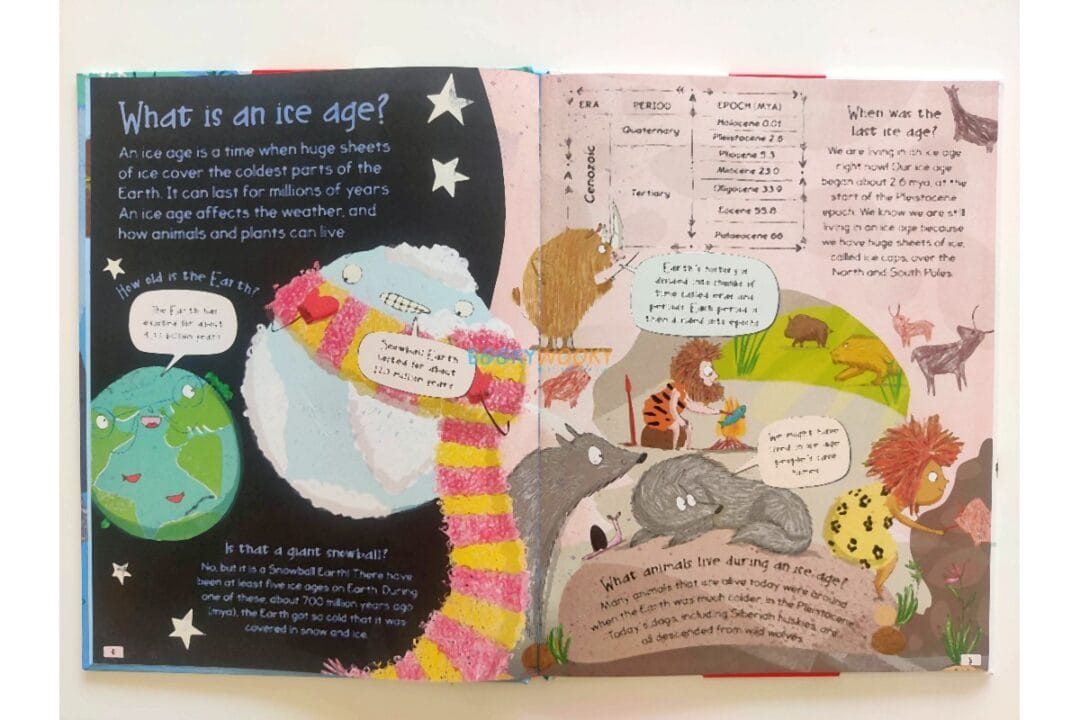 What is an ice age?
An ice age is a time when huge sheets
of ice cover the coldest parts of the
Earth. It can last for millions of years
An ice age affects the weather, and
how animals and plants can live
How old is the Earth?
The Earth has
existed for about
billion years
Snowball Earth
lasted for about
million years
Is that a giant snowball?
No, but it is a Snowball Earth! There have
been at least five ice ages on Earth. During
one of these, about 700 million years ago
(mya), the Earth got so cold that it was
covered in snow and ice.
4
ERA PERIOD EPOCH (MYA)
Cenozoic
Quaternary
Tertiary
Holocene 0.01
Pleistocene 2.6
Pliocene 5.3
Miocene 23.0
Oligocene 33.9
Eocene 55.8
Palaeocene 66
When was the
last ice age?
We are living in an ice age
right now! Our ice age
began about 2.6 mya, at the
start of the Pleistocene
epoch. We know we are still
living in an ice age because
we have huge sheets of ice,
called ice caps, over the
North and South Poles.
Earth's history is
divided into chunks of
time called eras and
periods. Each period is
then divided into epochs
BOOKYWOOKY
We might have
lived in ice age
people's cave
homes
What animals live during an ice age?
Many animals that are alive today were around
when the Earth was much colder, in the Pleistocene.
Today's dogs, including Siberian huskies, are
all descended from wild wolves.
5